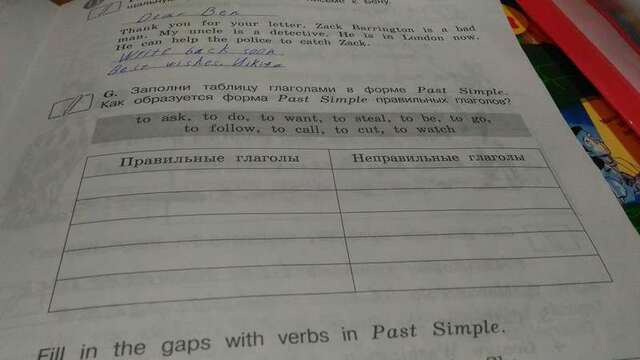 Dear Ben
Thank you for your letter. Zack Barrington is a bad
man. My uncle is a detective. He is in London now.
He can help the police to catch Zack.
Write back soon
Best wishes,
G. Заполни таблицу глаголами в форме Past Simple.
Как образуется форма Past Simple правильных глаголов?
to ask, to do, to want, to steal, to be, to go,
to follow, to call, to cut, to watch
Правильные глаголы Неправильные глаголы
Fill in the gaps with verbs in Past Simple.